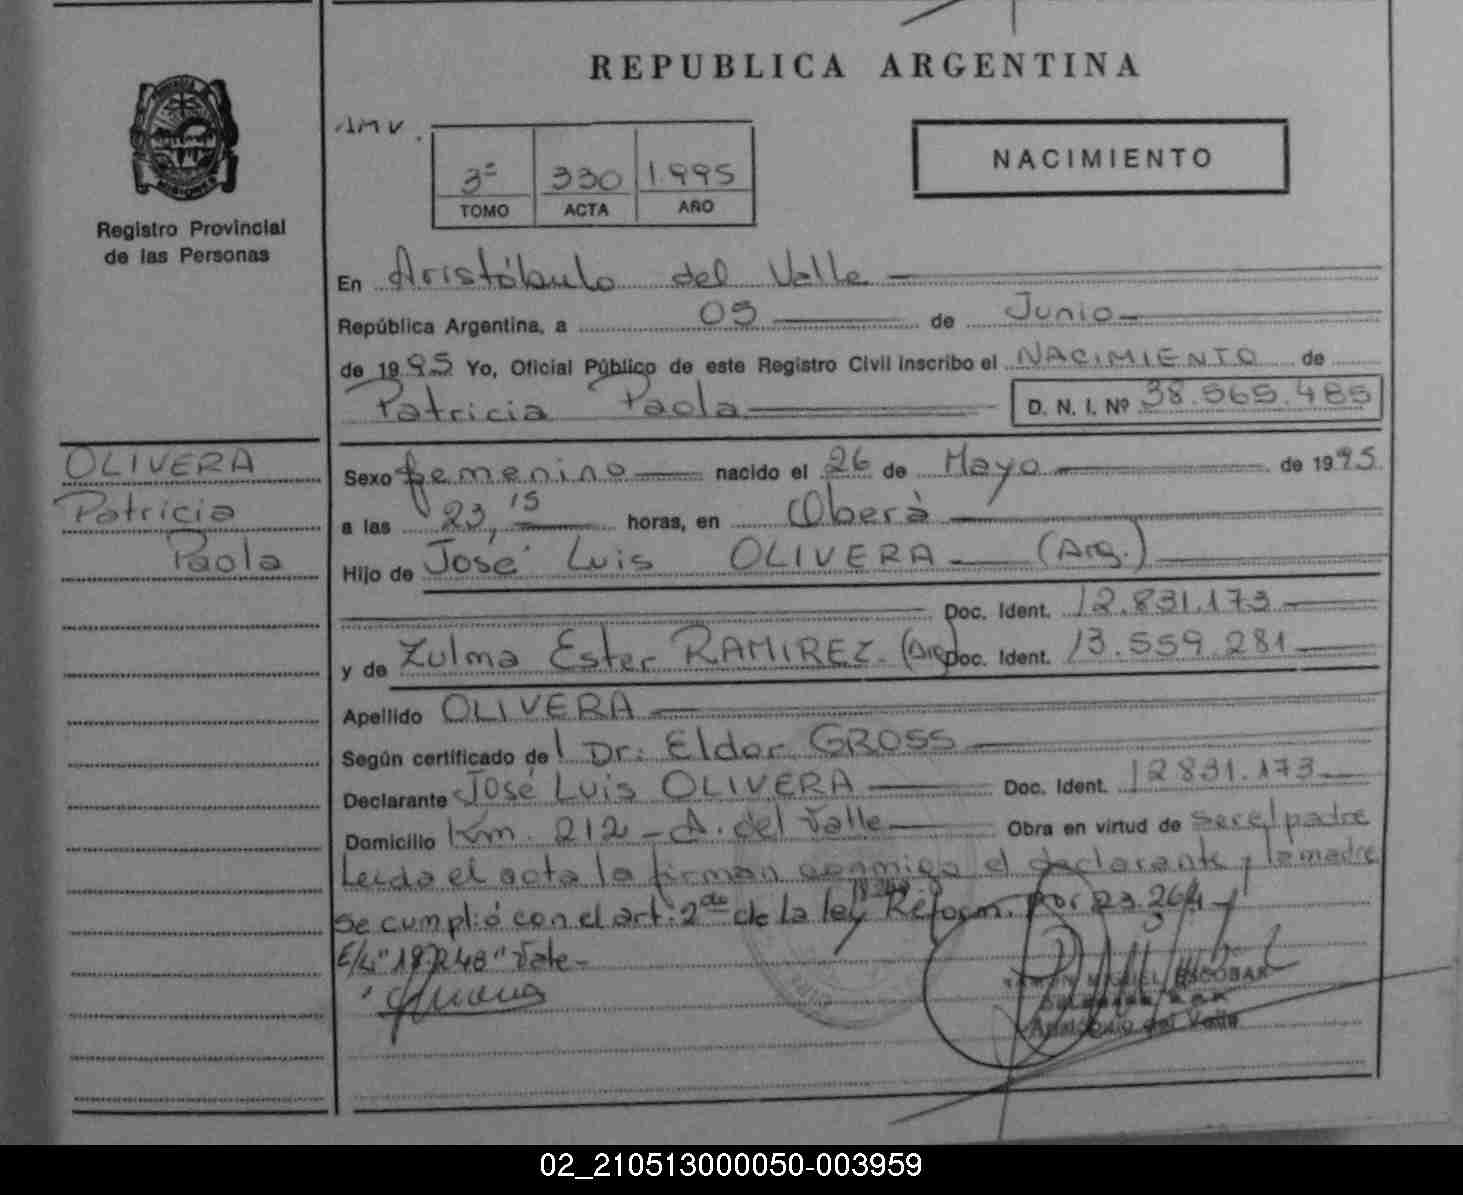 REPUBLICA ARGENTINA
AMV.
3º 330 1.995
TOMO ACTA AÑO
NACIMIENTO
Registro Provincial
de las Personas
En Aristóbulo del Valle
República Argentina, a 05 de Junio
de 1995 Yo, Oficial Público de este Registro Civil inscribo el NACIMIENTO de
Patricia Paola D. N. I. Nº 38.565.485
OLIVERA
Patricia
Paola
Sexo femenino nacido el 26 de Mayo de 1995
a las 23,15 horas, en Oberá
Hijo de José Luis OLIVERA (Arg.)
Doc. Ident. 12.831.173
y de Zulma Ester RAMIREZ. (Arg) Doc. Ident. 13.559.281
Apellido OLIVERA
Según certificado del Dr: Eldor GROSS
Declarante José Luis OLIVERA Doc. Ident. 12831.173
Domicilio Km. 212 - A. del Valle Obra en virtud de ser el padre
Leída el acta la firman conmigo el declarante y la madre
Se cumplió con el art: 2do de la ley Reform. por 23.264
E/L "18248" Vale-
ESCOBAR
Aristóbulo del Valle
02_210513000050-003959